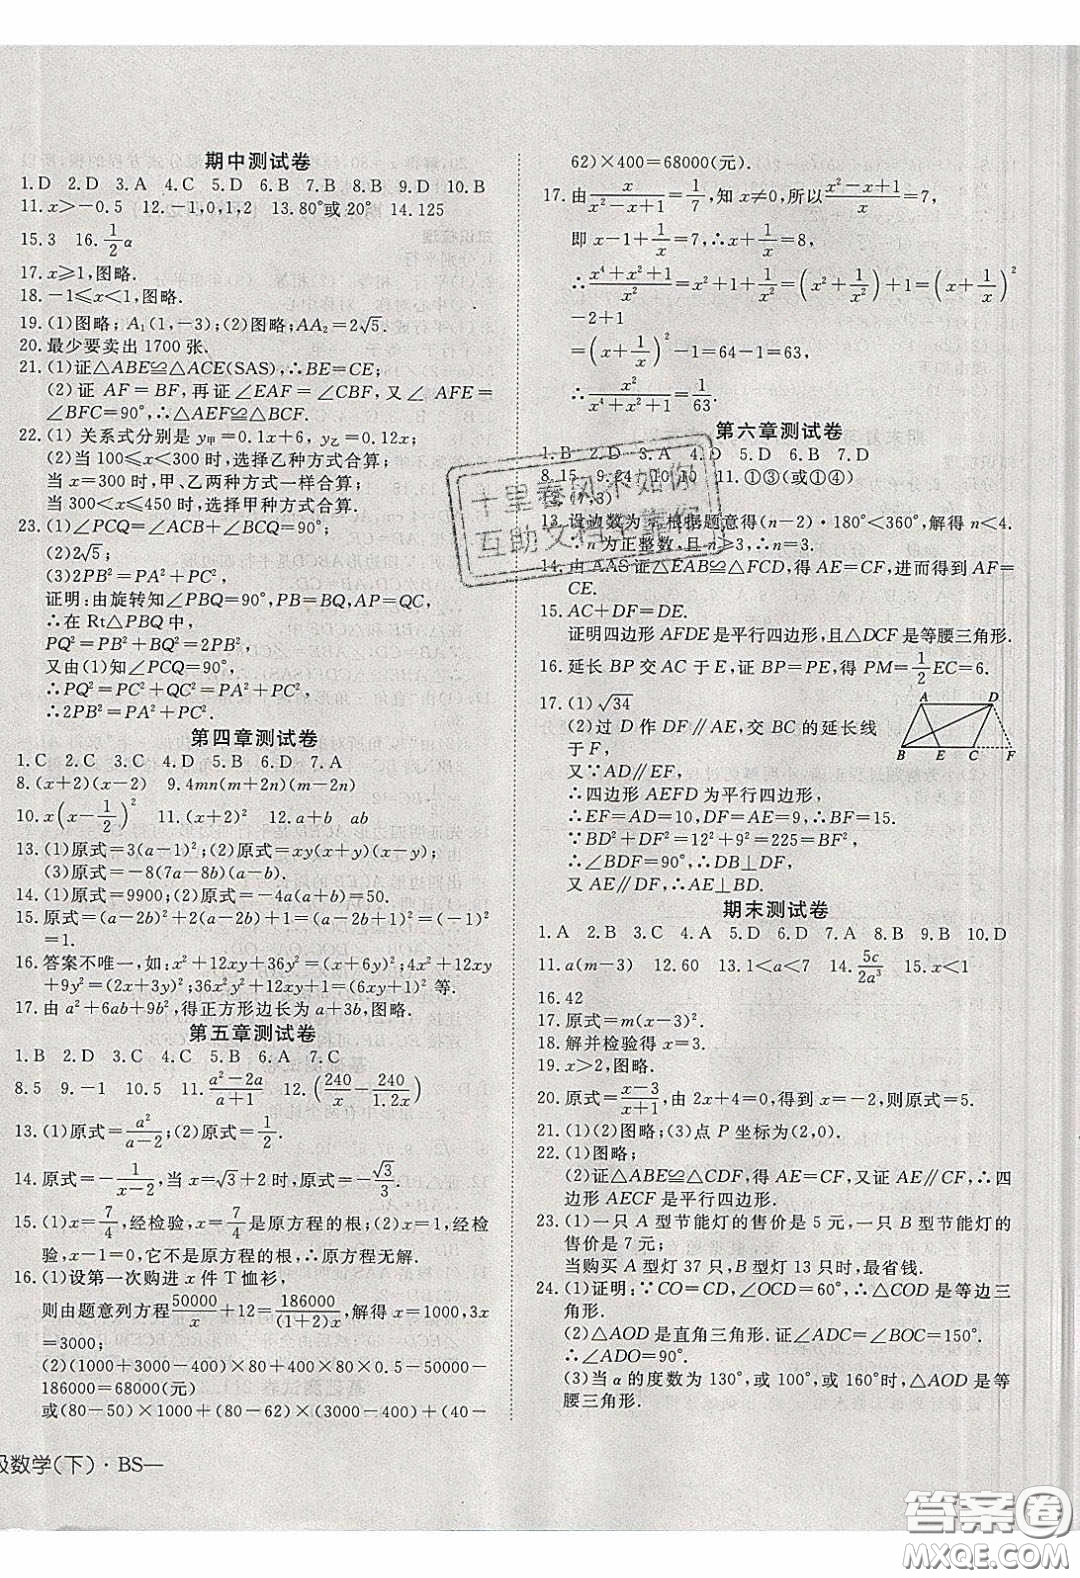 期中测试卷
1.D 2.D 3.A 4.C 5.D 6.B 7.B 8.B 9.D 10.B
11.x＞－0.5 12.－1,0,1,2 13.80°或 20° 14.125
15.3 16.1/2 α
17.x⩾1,图略.
18.－1⩽x＜1,图略.
19.(1)图略;A₁(1,－3);(2)图略;AA₂＝2√5.
20.最少要卖出 1700 张.
21.(1)证△ABE≌△ACE(SAS),∴BE＝CE;
(2)证 AF＝BF,再证∠EAF＝∠CBF,又∠AFE＝
∠BFC＝90°,∴△AEF≌△BCF.
22.(1) 关系式分别是 y甲＝0.1x＋6, y乙＝0.12x;
(2)当 100⩽x＜300 时,选择乙种方式合算;
当 x＝300 时,甲、乙两种方式一样合算;
当 300＜x⩽450 时,选择甲种方式合算.
23.(1)∠PCQ＝∠ACB＋∠BCQ＝90°;
(2)2√5;
(3)2PB²＝PA²＋PC²,
证明:由旋转知∠PBQ＝90°,PB＝BQ,AP＝QC,
∴在 Rt△PBQ 中,
PQ²＝PB²＋BQ²＝2PB²,
又由(1)知∠PCQ＝90°,
∴PQ²＝PC²＋QC²＝PA²＋PC²,
∴2PB²＝PA²＋PC².
第四章测试卷
1.C 2.C 3.C 4.D 5.B 6.D 7.A
8.(x＋2)(x－2) 9.4mn(m＋2n)(m－2n)
10.x(x－1/2)² 11.(x＋2)² 12.a＋b ab
13.(1)原式＝3(a－1)²;(2)原式＝xy(x＋y)(x－y);
(3)原式＝－8(7a－8b)(a－b).
14.(1)原式＝9900;(2)原式＝－4a(a＋b)＝50.
15.原式＝(a－2b)²＋2(a－2b)＋1＝(a－2b＋1)²＝(－1)²
＝1.
16.答案不唯一,如:x²＋12xy＋36y²＝(x＋6y)²;4x²＋12xy
＋9y²＝(2x＋3y)²;36x²y²＋12xy＋1＝(6xy＋1)² 等.
17.由 a²＋6ab＋9b²,得正方形边长为 a＋3b,图略.
第五章测试卷
1.B 2.D 3.C 4.C 5.B 6.A 7.C
8.5 9.－1 10.5 11.(a²－2a)/(a＋1) 12.(240/x－240/1.2x)
13.(1)原式＝a²/(a－2);(2)原式＝1/2.
14.原式＝－1/(x－2),当 x＝√3＋2时,原式＝－√3/3.
15.(1)x＝7/4,经检验,x＝7/4是原方程的根;(2)x＝1,经检
验,x－1＝0,它不是原方程的根,∴原方程无解.
16.(1)设第一次购进 x 件 T 恤衫,
则由题意列方程50000/x＋12＝186000/(1＋2)x,解得 x＝1000,3x
＝3000;
(2)(1000＋3000－400)×80＋400×80×0.5－50000－
186000＝68000(元)
或(80－50)×1000＋(80－62)×(3000－400)＋(40－
级数学(下)·BS—
62)×400＝68000(元).
17.由x/(x²－x＋1)＝1/7,知 x≠0,所以(x²－x＋1)/x＝7,
即 x－1＋1/x＝7,∴x＋1/x＝8,
∴(x⁴＋x²＋1)/x²＝x²＋1＋1/x²＝(x²＋1/x²)＋1＝(x＋1/x)²
－2＋1
＝(x＋1/x)²－1＝64－1＝63,
∴x²/(x⁴＋x²＋1)＝1/63.
第六章测试卷
1.B 2.D 3.A 4.D 5.D 6.B 7.D
8.15 9.24 10.10 11.①③(或①④)
12.(7,3)
13.设边数为 n,根据题意得(n－2)·180°＜360°,解得 n＜4.
∴n 为正整数,且 n⩾3,∴n＝3.
14.由 AAS 证△EAB≌△FCD,得 AE＝CF,进而得到 AF＝
CE.
15.AC＋DF＝DE.
证明四边形 AFDE 是平行四边形,且△DCF 是等腰三角形.
16.延长 BP 交 AC 于 E,证 BP＝PE,得 PM＝1/2EC＝6.
17.(1)√34
(2)过 D 作 DF∥AE,交 BC 的延长线
于 F,
又∵AD∥EF,
∴四边形 AEFD 为平行四边形.
∴EF＝AD＝10,DF＝AE＝9,∴BF＝15.
∵BD²＋DF²＝12²＋9²＝225＝BF²,
∴∠BDF＝90°,∴BD⊥DF.
又 AE∥DF,∴AE⊥BD.
A D
B E C F
期末测试卷
1.A 2.B 3.C 4.A 5.D 6.D 7.A 8.B 9.B 10.D
11.a(m－3) 12.60 13.1＜a＜7 14.5c/2a³ 15.x＜1
16.42
17.原式＝m(x－3)².
18.解并检验得 x＝3.
19.x＞2,图略.
20.原式＝(x－3)/(x＋1),由 2x＋4＝0,得到 x＝－2,则原式＝5.
21.(1)(2)图略;(3)点 P 坐标为(2,0).
22.(1)图略;
(2)证△ABE≌△CDF,得 AE＝CF,又证 AE∥CF,∴四
边形 AECF 是平行四边形.
23.(1)一只 A 型节能灯的售价是 5 元,一只 B 型节能灯的
售价是 7 元;
当购买 A 型灯 37 只,B 型灯 13 只时,最省钱.
24.(1)证明:∵CO＝CD,∠OCD＝60°,∴△COD 是等边三
角形.
(2)△AOD 是直角三角形.证∠ADC＝∠BOC＝150°.
∴∠ADO＝90°.
(3)当 α 的度数为 130°,或 100°,或 160°时,△AOD 是等
腰三角形.
十里春风不如你
互助文档
答案圈
MXQE.COM